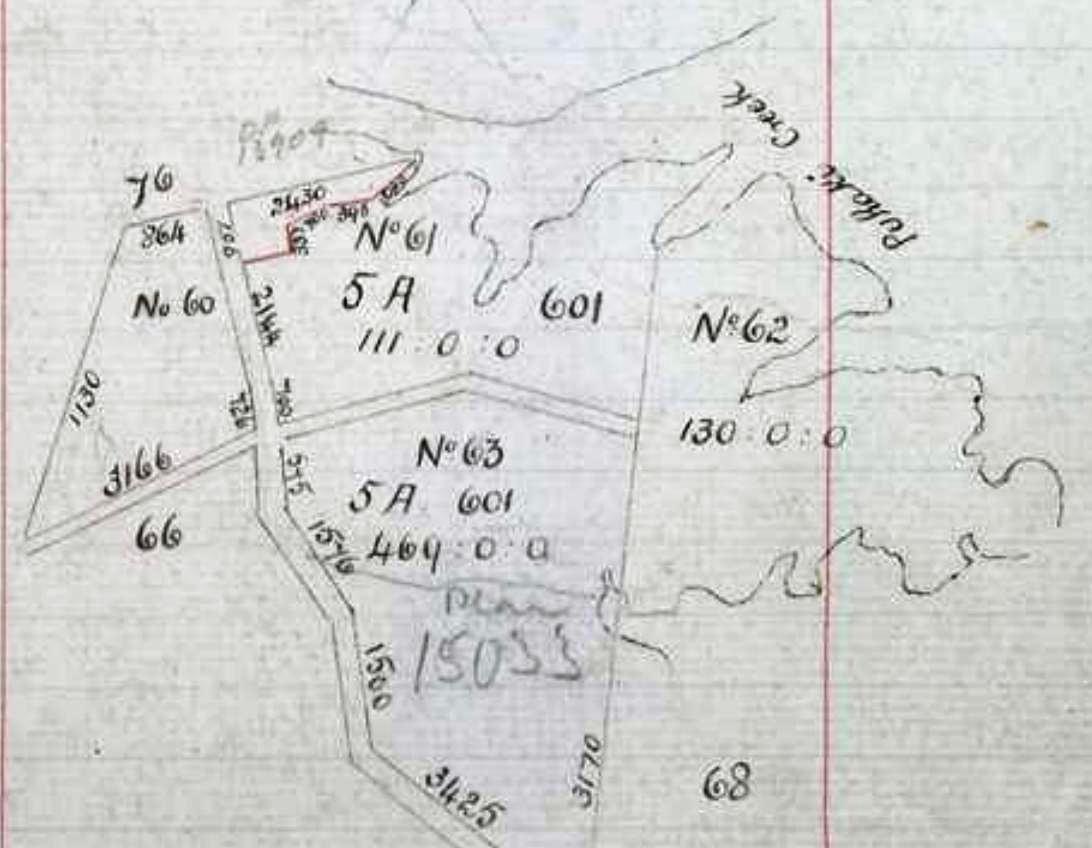 Pukaki Creek
76
2430
864
700
346
No 61
No 60
5 A
601
2144
111 : 0 : 0
No 62
1130
426
700
130 : 0 : 0
No 63
3166
345
5 A 601
66
1546
469 : 0 : 0
Plan
15033
1500
3170
68
3425